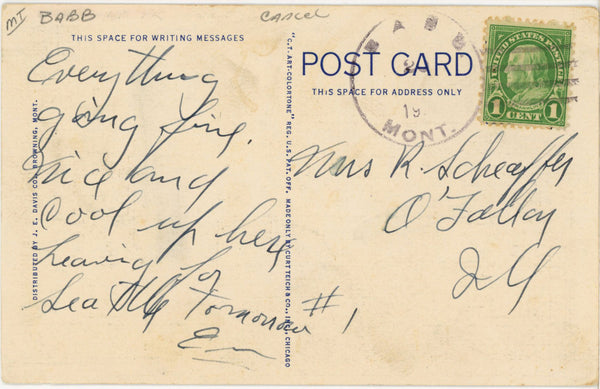 MT BABB
Cancel
THIS SPACE FOR WRITING MESSAGES
Everything
going fine,
nice and
cool up here
Leaving for
Seattle Tomorrow #1
Em
DISTRIBUTED BY J. E. DAVIS CO., BROWNING, MONT.
"C.T. ART-COLORTONE" REG. U.S. PAT. OFF. MADE ONLY BY CURT TEICH & CO., INC., CHICAGO
POST CARD
THIS SPACE FOR ADDRESS ONLY
BABB
19
MONT.
UNITED STATES POSTAGE
FRANKLIN
1 CENT 1
Mrs R. Scheaffer
O'Fallon
Ill